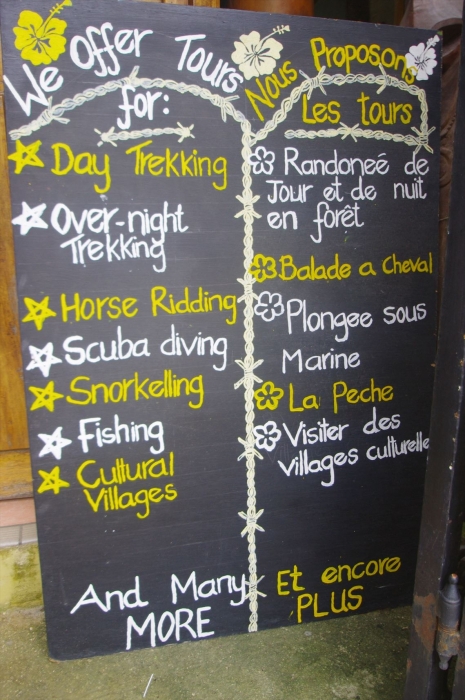 We Offer Tours
for:
Day Trekking
Over-night
Trekking
Horse Ridding
Scuba diving
Snorkelling
Fishing
Cultural
Villages
And Many
MORE
Nous Proposons
Les tours
Randoneé de
Jour et de nuit
en forêt
Balade a Cheval
Plongee sous
Marine
La Peche
Visiter des
villages culturelle
Et encore
PLUS